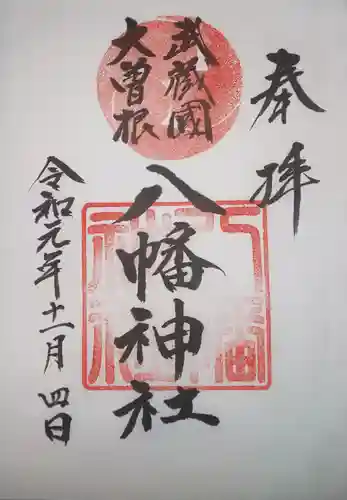 奉拝
武蔵國
大曽根
八幡神社
令和元年十一月四日